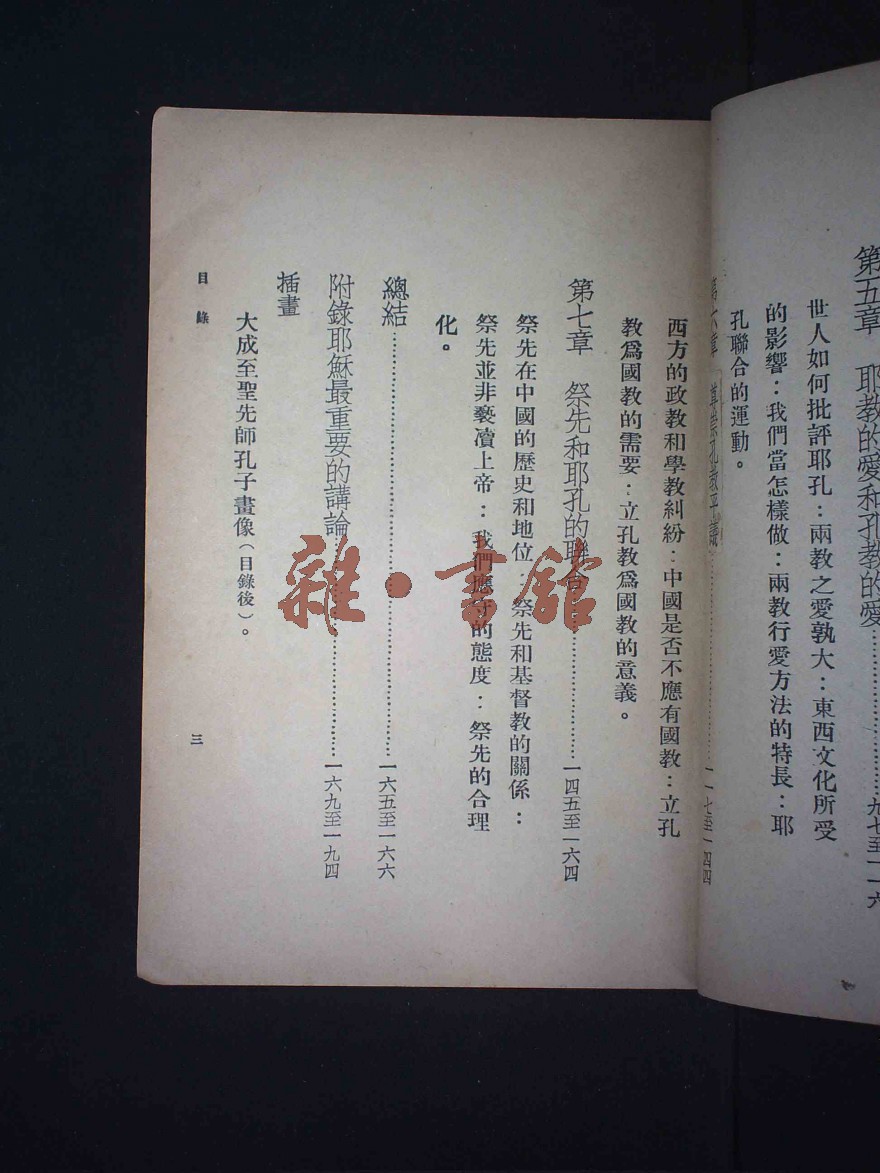 第五章　耶教的愛和孔教的愛……………九七至一一六
世人如何批評耶孔：兩教之愛孰大：東西文化所受
的影響：我們當怎樣做：兩教行愛方法的特長：耶
孔聯合的運動。
第六章　尊崇孔教平議……………一一七至一四四
西方的政教和學教糾紛：中國是否不應有國教：立孔
教爲國教的需要：立孔教爲國教的意義。
第七章　祭先和耶孔的聯合……………一四五至一六四
祭先在中國的歷史和地位：祭先和基督教的關係：
祭先並非褻瀆上帝：我們應守的態度：祭先的合理
化。
總結……………一六五至一六六
附錄耶穌最重要的講論……………一六九至一九四
插畫
大成至聖先師孔子畫像（目錄後）。
目錄
三
雜·書館